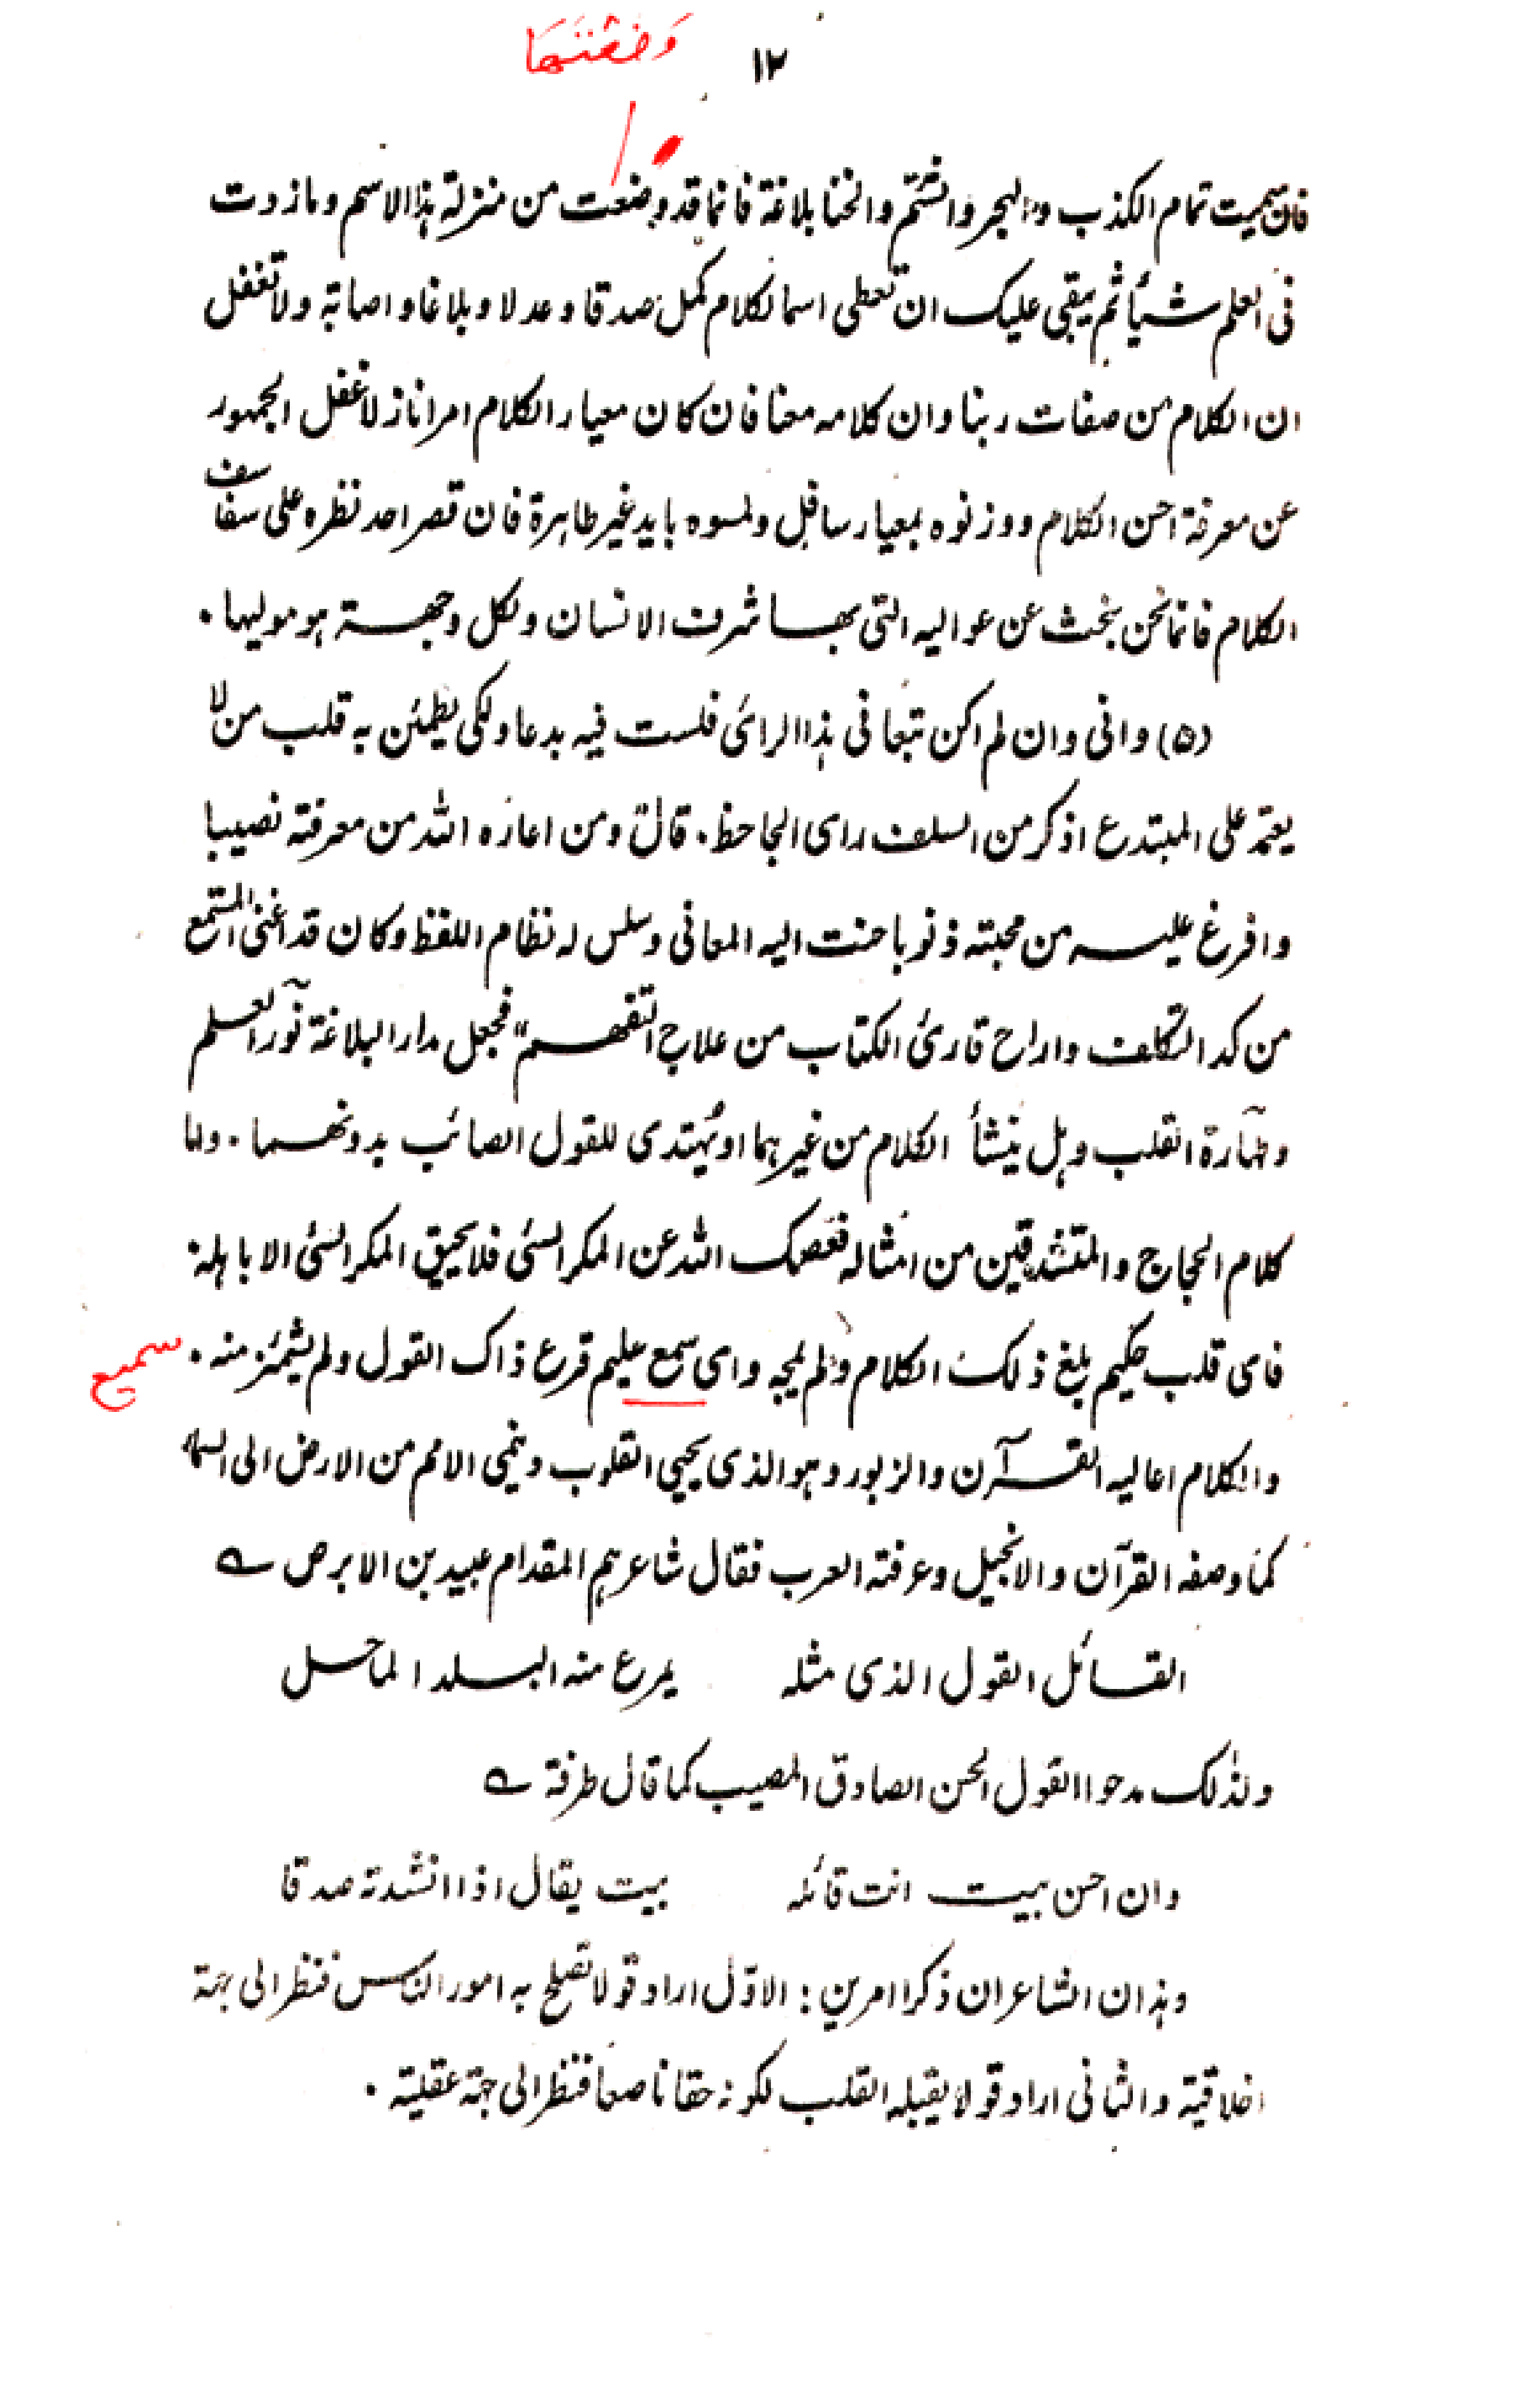 وَضَعْتَهَا
١٢
فان سميت تمام الكذب والهجر والشتم والخنا بلاغة فانما قد وضعت من منزلة هذا الاسم وما زدت
فى العلم شيأ ثم يبقى عليك ان تعطى اسما لكلام كمل صدقا وعدلا وبلاغا واصابة ولا تغفل
ان الكلام من صفات ربنا وان كلامه معنا فان كان معيار الكلام امرا نازلا غفل الجمهور
عن معرفة احسن الكلام ووزنوه بمعيار سافل ولمسوه بايد غير طاهرة فان قصر احد نظره على سفاسف
الكلام فانما نحن نبحث عن عواليه التى بها شرف الانسان ولكل وجهة هو موليها ۔
(۵) وانى وان لم اكن تبعا فى هذا الرائ فلست فيه بدعا ولكى يطمئن به قلب من لا
يعتمد على المبتدع اذكر من السلف راى الجاحظ ۔ قال " ومن اعاره الله من معرفته نصيبا
وافرغ عليه من محبته ذنوبا حنت اليه المعانى وسلس له نظام اللفظ وكان قد اغنى المستمع
من كد التكلف واراح قارئ الكتاب من علاج التفهم " فجعل مدار البلاغة نور العلم
وطهارة القلب وهل ينشأ الكلام من غيرهما او يُهتدى للقول الصائب بدونهما ۔ واما
كلام الحجاج والمتشدقين من امثاله فعصمك الله عن المكر السئ فلا يحيق المكر السئ الا باهله ۔
فاى قلب حكيم بلغ ذلك الكلام ولم يمجه واى سمع عليم قرع ذاك القول ولم يشمئز منه ۔ سميع
والكلام اعاليه القرآن والزبور وهو الذى يحيي القلوب وينمى الامم من الارض الى السماء
كما وصفه القرآن والانجيل وعرفته العرب فقال شاعرهم المقدام عبيد بن الابرص ے
القائل القول الذى مثله يمرع منه البلد الماحل
ولذلك مدحوا القول الحسن الصادق المصيب كما قال طرفة ے
وان احسن بيت انت قائله بيت يقال اذا انشدته صدقا
وهذان الشاعران ذكرا امرين : الاوّل اراد قولا تصلح به امور الناس فنظر الى جهة
اخلاقية والثانى اراد قولا يقبله القلب لكونه حقا ناصعا فنظر الى جهة عقلية ۔